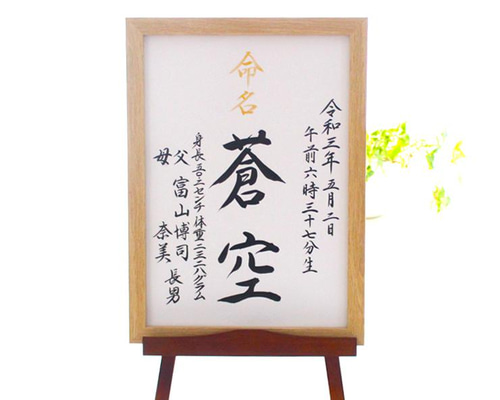 命名
令和三年五月二日
午前六時三十七分生
蒼空
身長五〇二センチ体重二三二八グラム
父 富山博司
母 奈美
長男